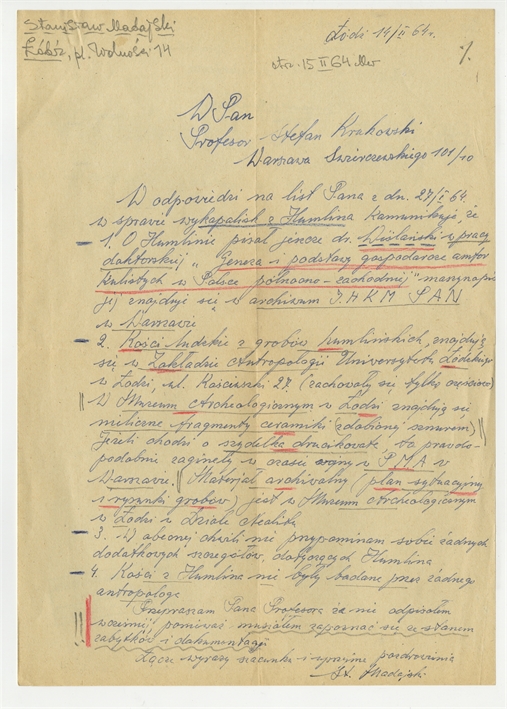 Stanisław Madajski
Łódź, pl. Wolności 14
Łódź 14/II 64r.
otrz. 15 II 64
W Pan
Profesor Stefan Krukowski
Warszawa Świerczewskiego 101/10
W odpowiedzi na list Pana z dn. 27/I 64.
w sprawie wykopalisk z Humlina komunikuję, że
1. O Humlinie pisał jeszcze dr. Wiślański w pracy
doktorskiej „Geneza i podstawy gospodarcze amfor
kulistych w Polsce północno-zachodniej" maszynopis
jej znajduje się w archiwum I.H.K.M PAN
w Warszawie
2. Kości ludzkie z grobów humlińskich, znajdują
się w Zakładzie Antropologii Uniwersytetu Łódzkiego
w Łodzi, ul. Kościuszki 27. (zachowały się tylko częściowo)
W Muzeum Archeologicznym w Łodzi znajdują się
nieliczne fragmenty ceramiki (zdobionej sznurem)
Jeżeli chodzi o szydełka to prawdo-
podobnie zaginęły w czasie wojny w P.M.A w
Warszawie. Materiał archiwalny (plan sytuacyjny
i rysunki grobów) jest w Muzeum Archeologicznym
w Łodzi w Dziale Neolitu
3. W obecnej chwili nie przypominam sobie żadnych
dodatkowych szczegółów, dotyczących Humlina
4. Kości z Humlina nie były badane przez żadnego
antropologa
Przepraszam Pana Profesora że nie odpisałem
wcześniej, ponieważ musiałem zapoznać się ze stanem
zabytków i dokumentacji
Łączę wyrazy szacunku i pozdrowienia
St. Madajski